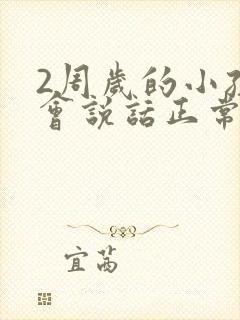 2周歲的小孩
會說話正常
宜茜